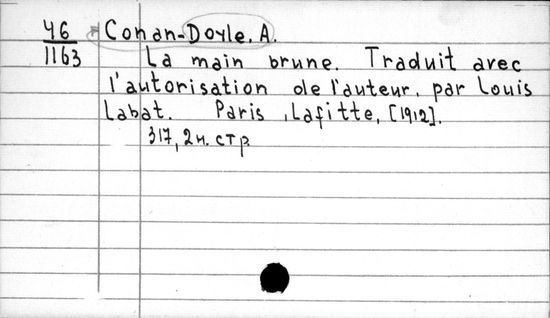 46 Conan-Doyle, A.
1163 La main brune. Traduit avec
l'autorisation de l'auteur, par Louis
Labat. Paris, Lafitte, [1912].
317, 2 н. стр.